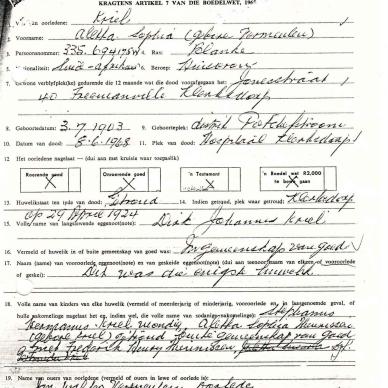 KRAGTENS ARTIKEL 7 VAN DIE BOEDELWET, 196
an oorledene: Kriel
2. Voorname: Aletta Sophia (gebore Vermeulen)
3. Persoonsnommer: 335 694178W 4. Ras: Blanke
5. asionaliteit: Suid-Afrikaans 6. Beroep: Huisvrou
7. Gewone verblyfplek(ke) gedurende die 12 maande wat die dood voorafgegaan het: Jonesstraat
40 Freemanville Klerksdorp
8. Geboortedatum: 3.7.1903 9. Geboorteplek: distrik Potchefstroom
10. Datum van dood: 8-6-1968 11. Plek van dood: Hospitaal Klerksdorp
12. Het oorledene nagelaat — (dui aan met kruisie waar toepaslik)
Roerende goed
Onroerende goed
'n Testament
'n Boedel wat R2,000 te bowe gaan
X X X X
13. Huwelikstaat ten tyde van dood: Getroud 14. Indien getroud, plek waar getroud: Klerksdorp
op 29 April 1924
15. Volle name van langslewende eggenoot(note): Dirk Johannes Kriel
16. Vermeld of huwelik in of buite gemeenskap van goed was: In gemeenskap van goed
17. Naam (name) van vooroorlede eggenoot(note) en van geskeide eggenoot(note) (dui aan teenoor naam van elkeen of vooroorlede of geskei):
Dit was die enigste huwelik
18. Volle name van kinders van elke huwelik (vermeld of meerderjarig of minderjarig, vooroorlede
Stephanus
Hermanus Kriel mondig, Aletta Sophia
(gebore Kriel) getroud buite gemeenskap van goed
Frederik Henry
19. Name van ouers van oorledene (vermeld of ouers in lewe of oorlede is):